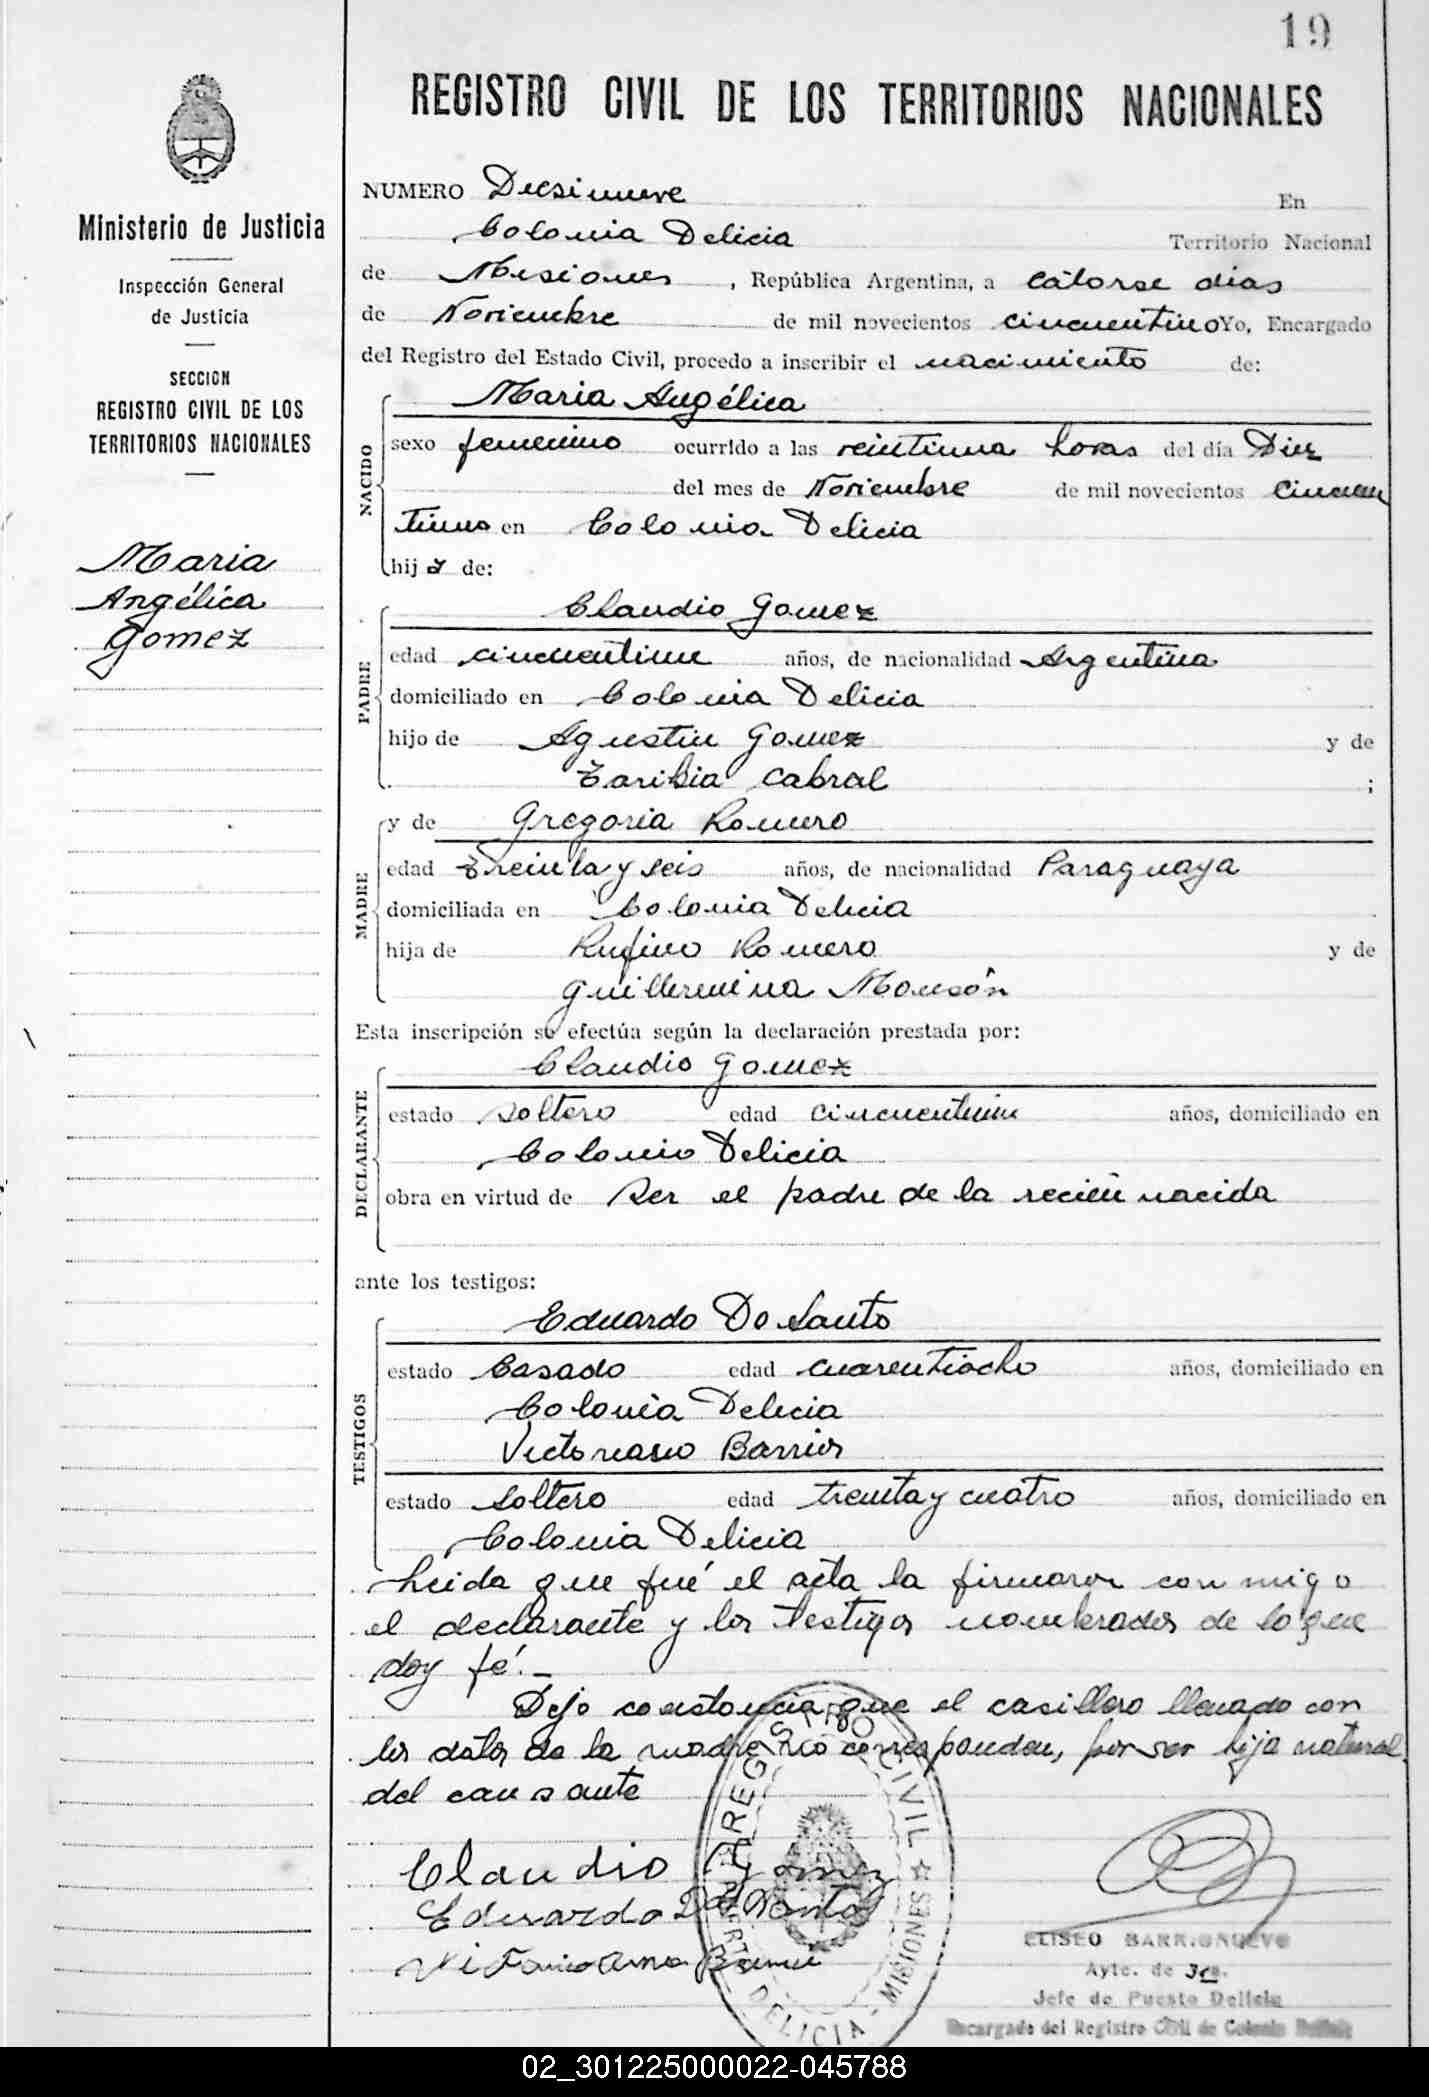 19
REGISTRO CIVIL DE LOS TERRITORIOS NACIONALES
Ministerio de Justicia
Inspección General
de Justicia
SECCION
REGISTRO CIVIL DE LOS
TERRITORIOS NACIONALES
Maria
Angélica
Gomez
NUMERO Diesinueve En
Colonia Delicia Territorio Nacional
de Misiones, República Argentina, a catorse dias
de Noviembre de mil novecientos cincuentiuno Yo, Encargado
del Registro del Estado Civil, procedo a inscribir el nacimiento de:
NACIDO
Maria Angélica
sexo femenino ocurrido a las veintiuna horas del día Diez
del mes de Noviembre de mil novecientos cincuen
tiuno en Colonia Delicia
hija de:
PADRE
Claudio Gomez
edad cincuentiun años, de nacionalidad Argentina
domiciliado en Colonia Delicia
hijo de Agustin Gomez y de
Cabral ;
MADRE
y de Gregoria Romero
edad treinta y seis años, de nacionalidad Paraguaya
domiciliada en Colonia Delicia
hija de Rufino Romero y de
Guillermina Monsón
Esta inscripción se efectúa según la declaración prestada por:
DECLARANTE
Claudio Gomez
estado soltero edad cincuentiun años, domiciliado en
Colonia Delicia
obra en virtud de ser el padre de la recien nacida
ante los testigos:
TESTIGOS
Eduardo Do Santo
estado Casado edad cuarentiocho años, domiciliado en
Colonia Delicia
Victoriano Barrios
estado soltero edad treinta y cuatro años, domiciliado en
Colonia Delicia
Leida que fué el acta la firmaron con migo
el declarante y los testigos nombrados de lo que
doy fé.-
Dejo constancia que el casillero llenado con
los datos de la madre no corresponden, por ser hija natural
del causante
Claudio Gomez
Eduardo Do Santo
REGISTRO CIVIL
DELICIA - MISIONES
ELISEO BARRIONUEVO
Ayte. de 3ra.
Jefe de Puesto Delicia
Encargado del Registro Civil de Colonia Delicia
02_301225000022-045788